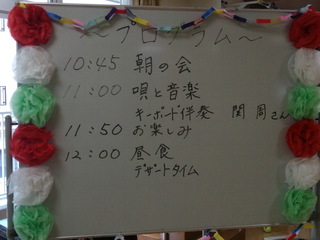 ～プログラム～
10:45 朝の会
11:00 唄と音楽
キーボード伴奏 関 周さん
11:50 お楽しみ
12:00 昼食
デザートタイム